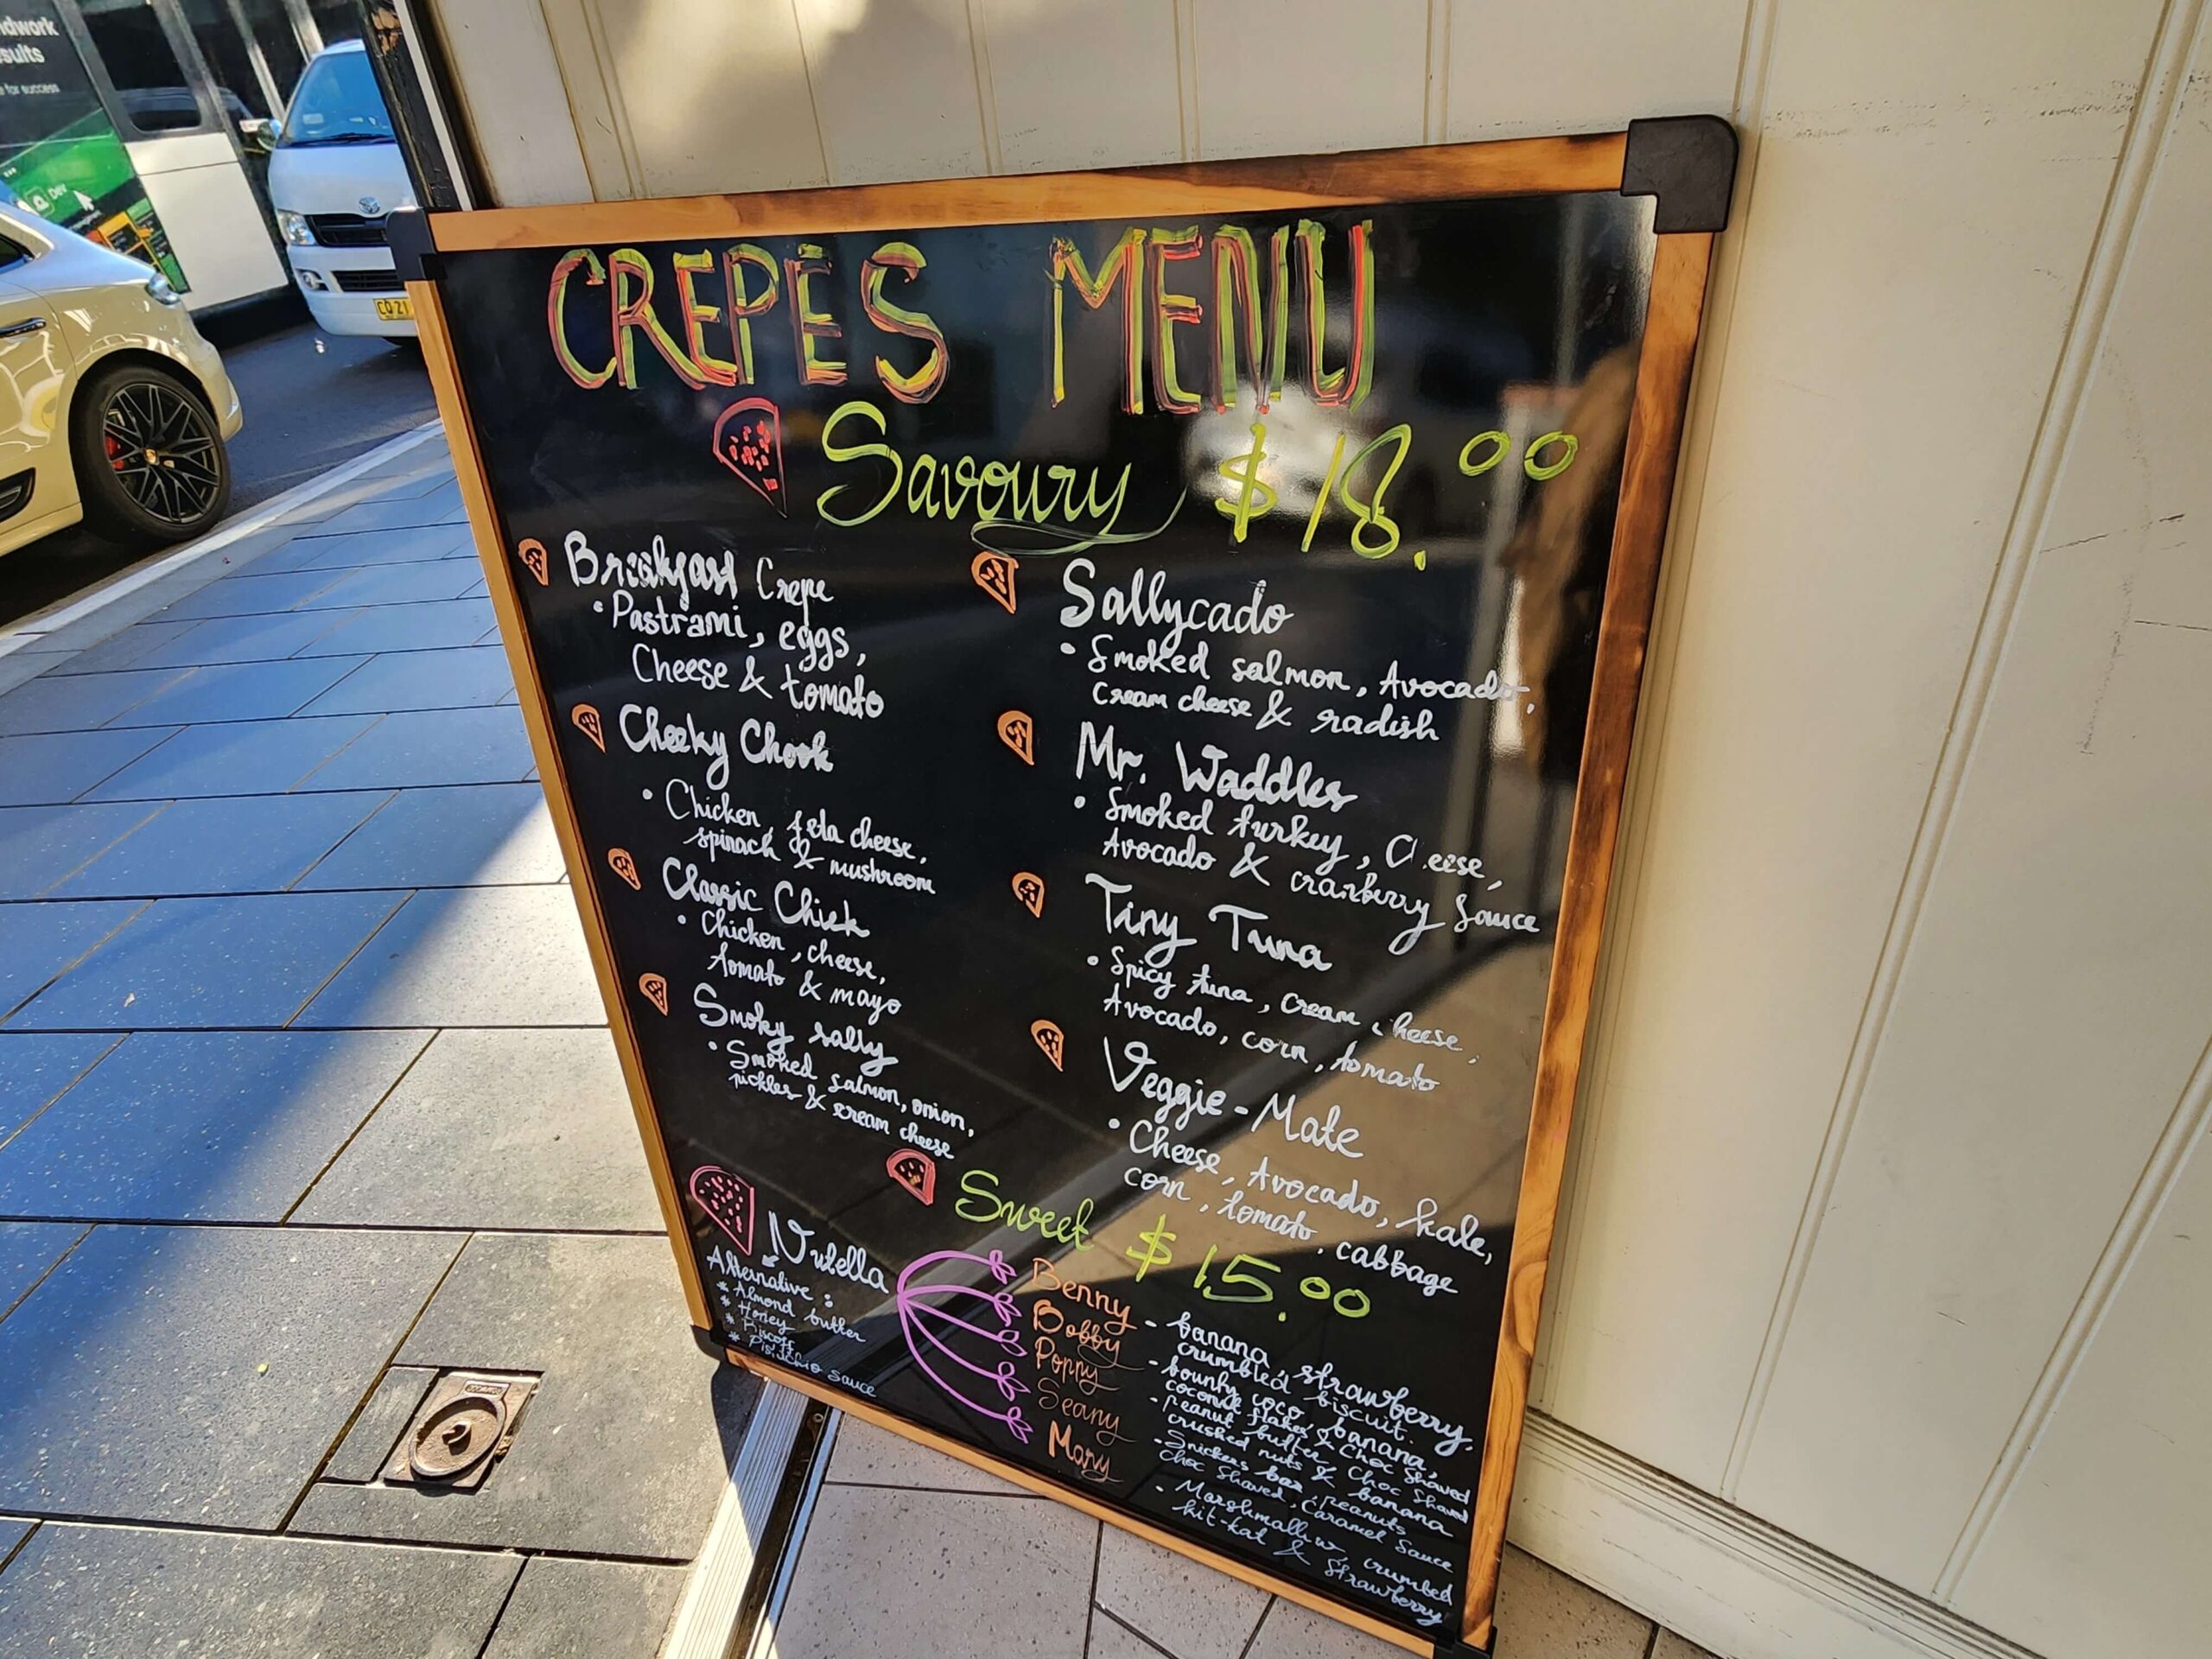 dwork
sults
e for success
Dev
CQ21
CREPES MENU
Savoury $18.00
Breakfast Crepe
• Pastrami, eggs,
Cheese & tomato
Cheeky Chook
• Chicken, feta cheese,
spinach & mushroom
Classic Chick
• Chicken, cheese,
tomato & mayo
Smoky sally
• Smoked salmon, onion,
pickles & cream cheese
Sallycado
• Smoked salmon, Avocado,
Cream cheese & radish
Mr. Waddles
• Smoked turkey, Cheese,
Avocado & cranberry Sauce
Tiny Tuna
• Spicy tuna, cream cheese,
Avocado, corn, tomato
Veggie-Mate
• Cheese, Avocado, kale,
corn, tomato, cabbage
Sweet $15.00
Nutella
Alternative:
* Almond butter
* Honey
* Biscoff
* Pistachio sauce
Benny
Bobby
Poppy
Seany
Mary
- banana, strawberry,
crumbled biscuit.
- bounty, coco, banana,
coconut flakes & Choc Shaved
- Peanut butter, Choc Shaved
crushed nuts & banana
- Snickers bar, peanuts
Choc Shaved, Caramel Sauce
- Marshmallow, crumbed
kit-kat & Strawberry